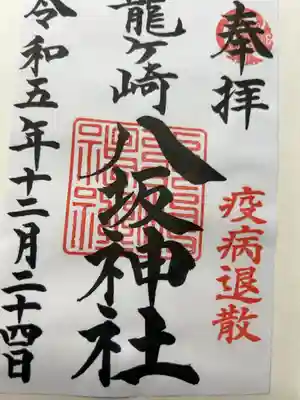 奉拝
疫病退散
龍ケ崎
八坂神社
令和五年十二月二十四日